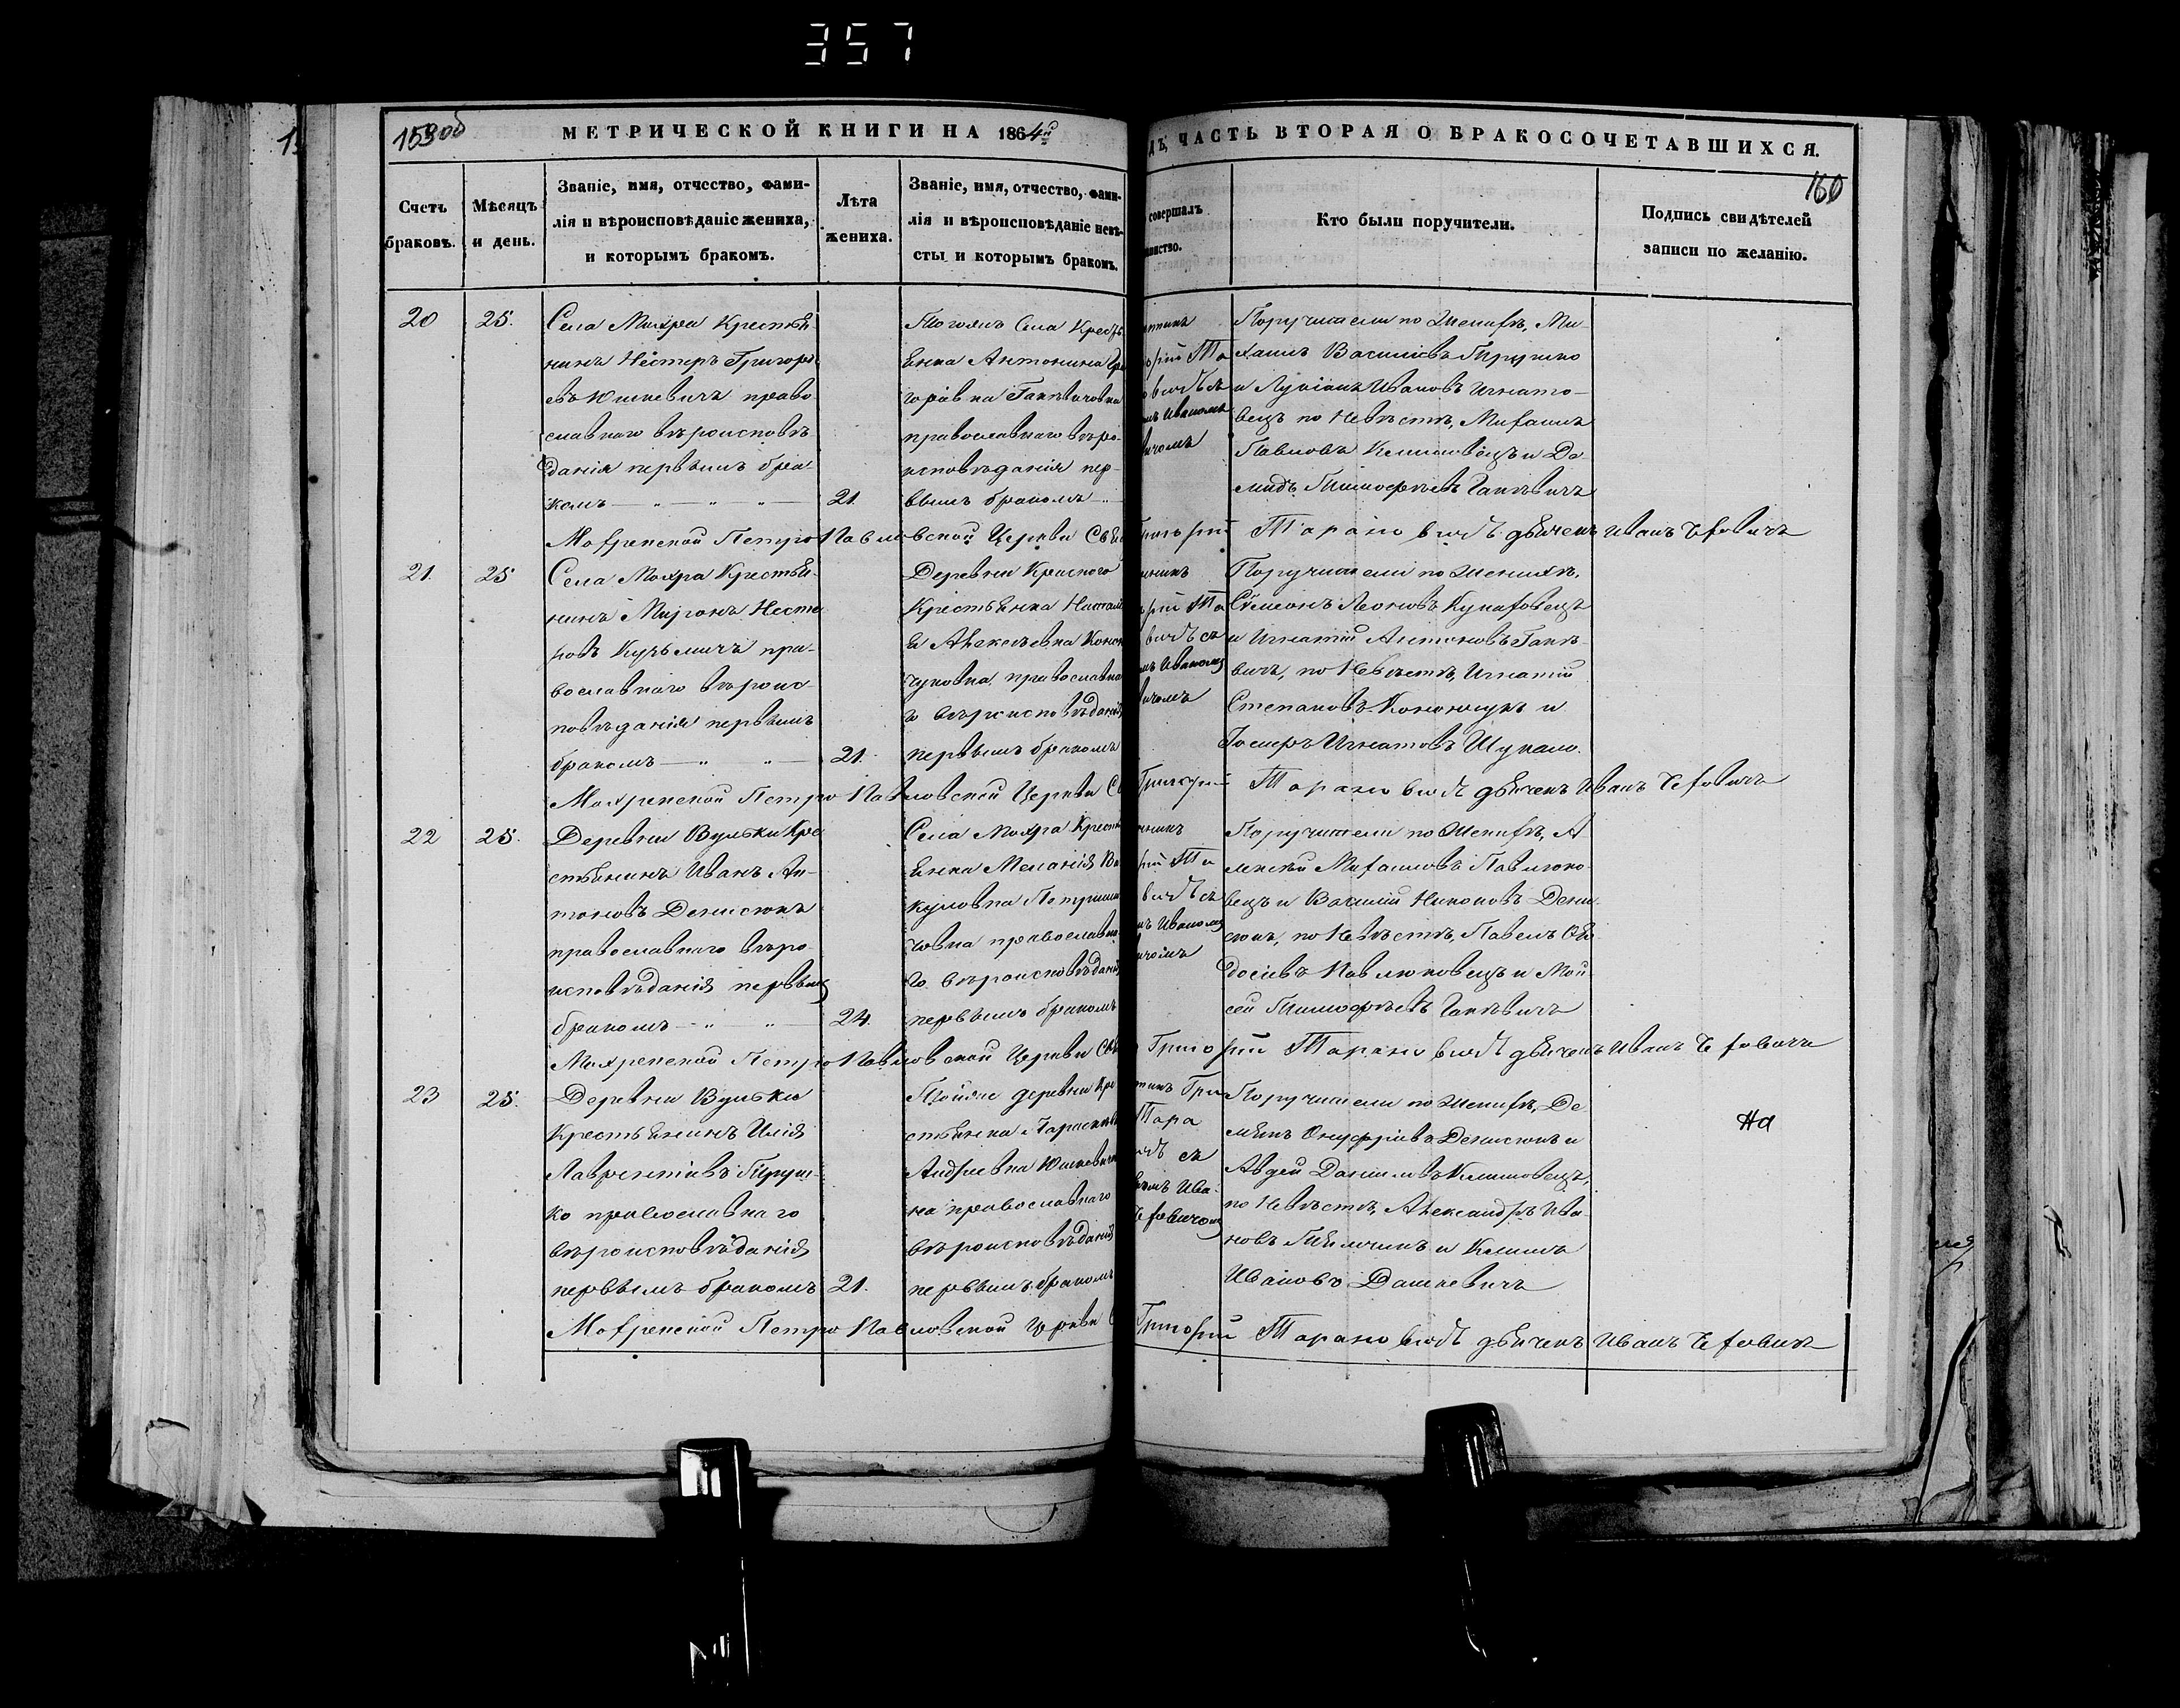 357
159об
МЕТРИЧЕСКОЙ КНИГИ НА 1864й
ДЪ, ЧАСТЬ ВТОРАЯ О БРАКОСОЧЕТАВШИХСЯ.
160
Счетъ
браковъ.
Мѣсяцъ
и день.
Званіе, имя, отчество, фами-
лія и вѣроисповѣданіе жениха,
и которымъ бракомъ.
Лѣта
жениха.
Званіе, имя, отчество, фами-
лія и вѣроисповѣданіе невѣ-
сты и которымъ бракомъ.
совершалъ
инство.
Кто были поручители.
Подпись свидѣтелей
записи по желанію.
20
25.
Села Мохра Крестья-
нинъ Несторъ Григорь
евъ Юшкевичъ право
славнаго вѣроисповѣ
данія первымъ бра-
комъ
21.
Тогожъ Села Кресть
янка Антонина Гри
горіевна Гацкевичовна
православнаго вѣро-
исповѣданія пер-
вымъ бракомъ
Поручители по Женихѣ, Ми-
хаилъ Василіевъ Пирушко
и Лукіанъ Ивановъ Игнато-
вецъ по Невѣстѣ, Михаилъ
Павловъ Климовецъ и Де-
мидъ Тимофѣевъ
Мохренской Петро Павловской Церкви
Григорій Тарановичъ дьячекъ Иванъ
21.
25
Села Мохра Крестья-
нинъ Миронъ Несте
ровъ Кузьмичъ пра-
вославнаго вѣроис-
повѣданія первымъ
бракомъ
21.
Деревни Красного
Крестьянка Наталі
я Алексѣевна Конон
чуковна православна
го вѣроисповѣданія
первымъ бракомъ
Поручители по Женихѣ,
Сѵмеонъ Леоновъ Кухаровецъ
и Игнатій Антоновъ
вичъ, по Невѣстѣ, Игнатій
Степановъ Конончукъ и
Игнатовъ
Мохренской Петро Павловской Церкви
Григорій Тарановичъ дьячекъ Иванъ
22
25.
Деревни Вульки Кре
стьянинъ Иванъ Ан-
тоновъ Денисюкъ
православнаго вѣро-
исповѣданія первымъ
бракомъ
24.
Села Мохра Кресть
янка Меланія Ва
куловна
човна православна
го вѣроисповѣданія
первымъ бракомъ
Поручители по Женихѣ, А
лексѣй Михаиловъ Павлюко-
вецъ и Василій Никоновъ Дени-
сюкъ, по Невѣстѣ, Павелъ Ѳео
досіевъ Павлюковецъ и Мои-
сей Тимофѣевъ
Мохренской Петро Павловской Церкви
Григорій Тарановичъ дьячекъ Иванъ
23
25.
Деревни Вульки
Крестьянинъ Илія
Лаврентіевъ Пируш-
ко православнаго
вѣроисповѣданія
первымъ бракомъ
21.
Тойже деревни Кре
стьянка Параскева
Андреевна Юшкевичов
на православнаго
вѣроисповѣданія
первымъ бракомъ
Поручители по Женихѣ, Де
мянъ Онуфріевъ Денисюкъ и
Авдей Даніиловъ Климовецъ,
по Невѣстѣ, Александръ Ива
новъ и Климъ
Ивановъ Дашкевичъ
На
Мохренской Петро Павловской Церкви
Григорій Тарановичъ дьячекъ Иванъ